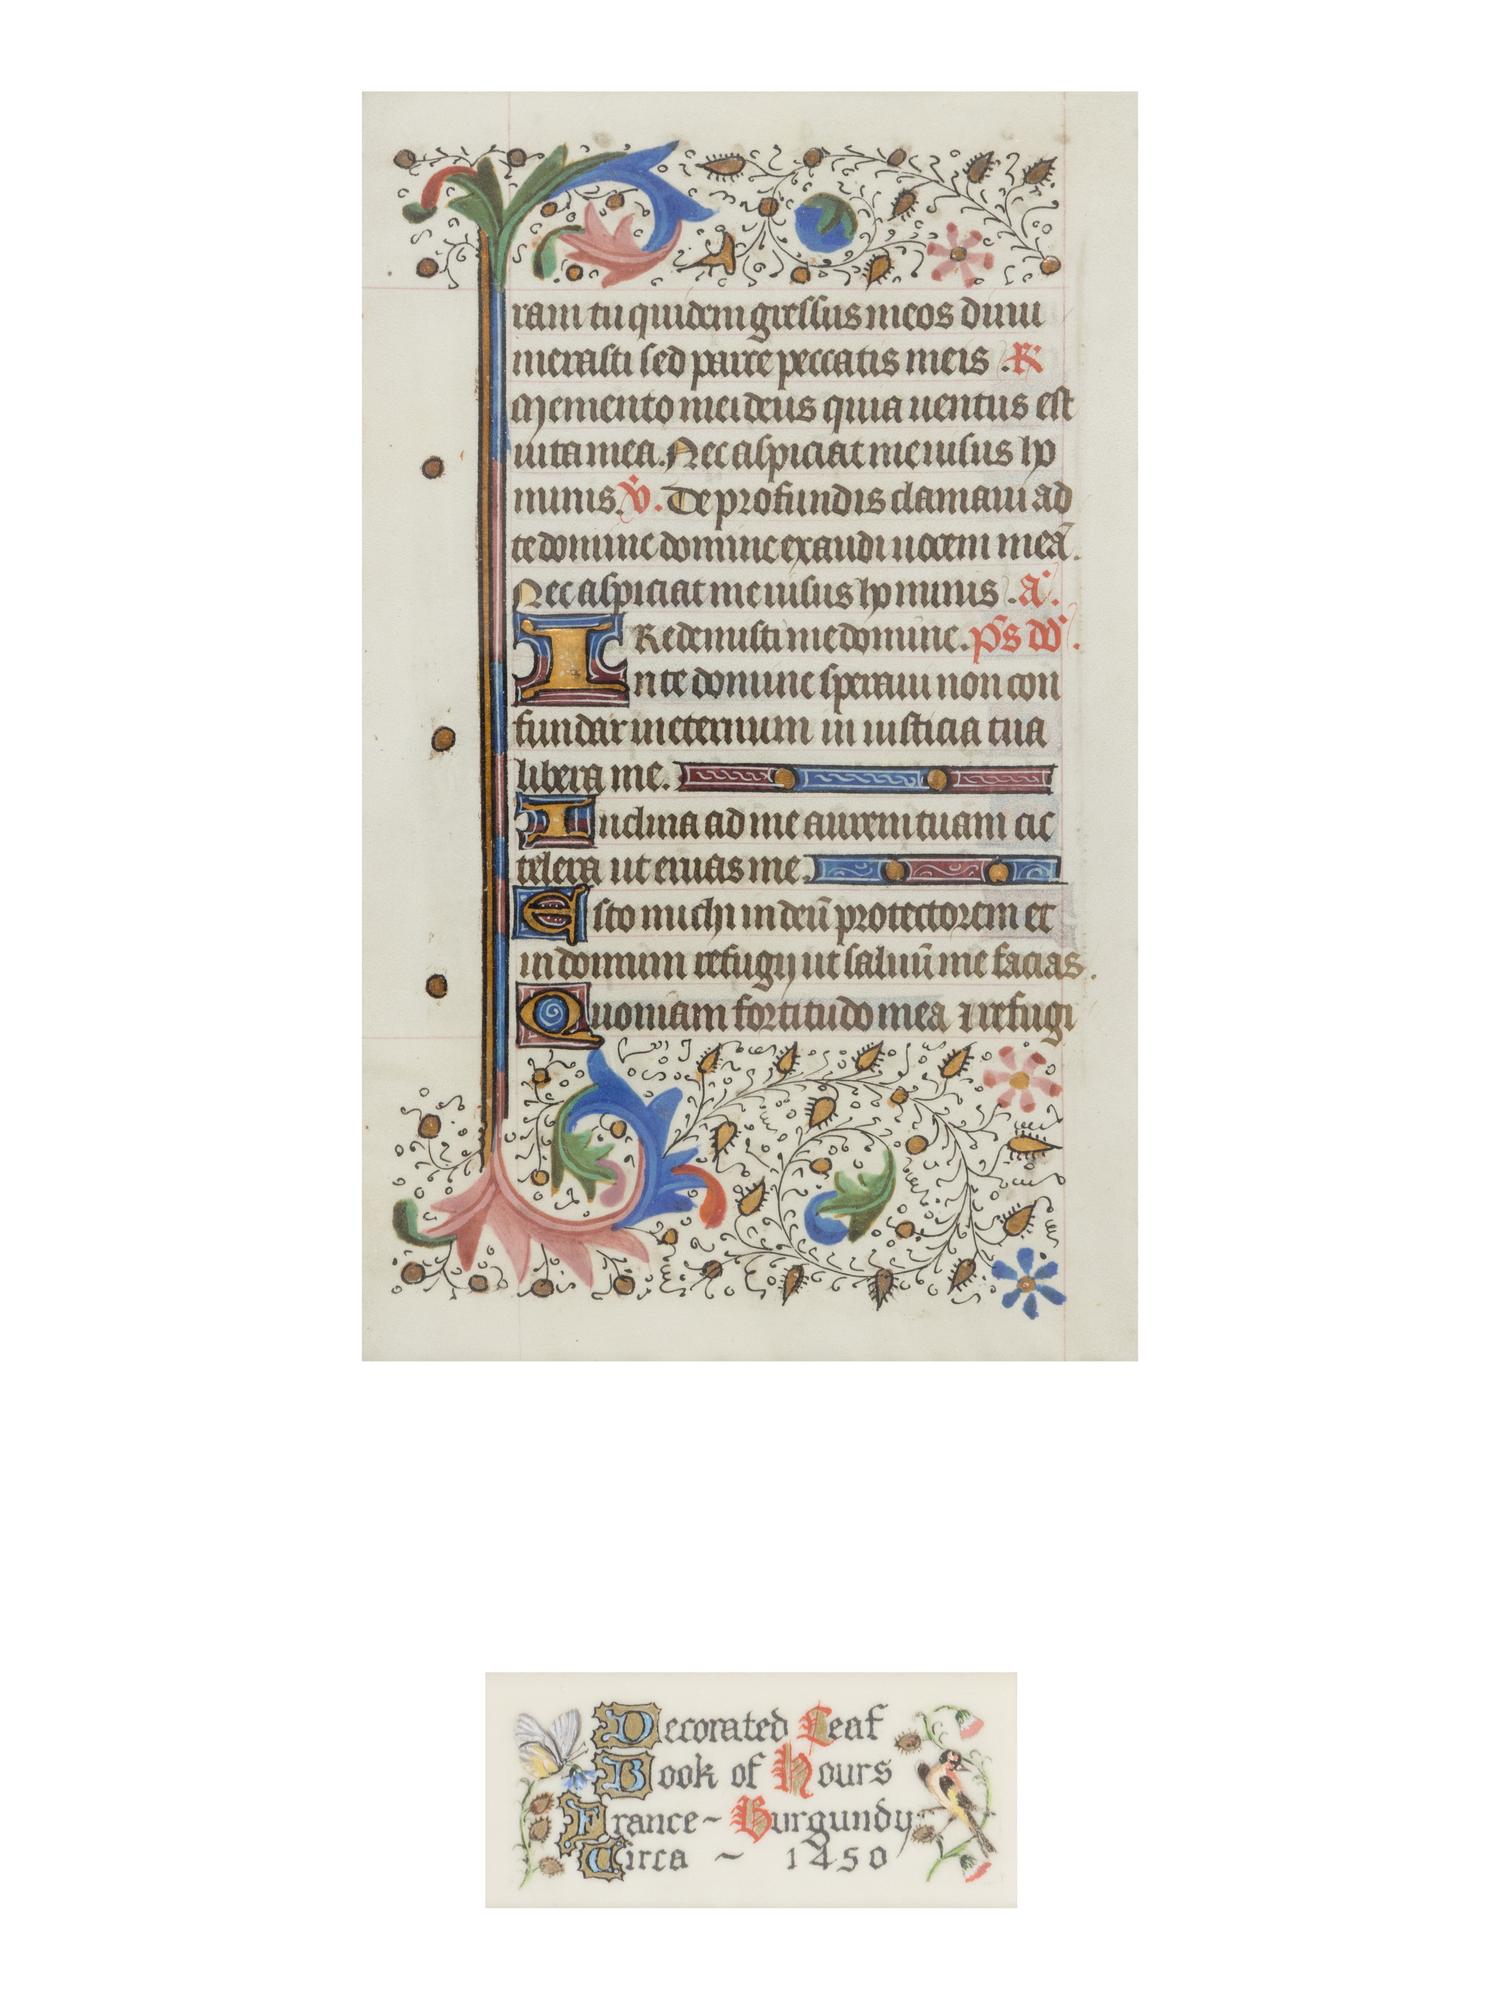 ram tu quidem gressus meos dinu
merasti sed parce peccatis meis . R
Memento mei deus quia uentus est
uita mea. Nec aspiciat me uisus ho
minis. V. De profundis clamaui ad
te domine domine exaudi uocem meā.
Nec aspiciat me uisus hominis . a.
Redemisti me domine. ps dd.
In te domine speraui non con
fundar in eternum in iusticia tua
libera me.
Inclina ad me aurem tuam ac
celera ut eruas me.
Esto michi in deū protectorem et
in domum refugij ut saluū me facias.
Quoniam fortitudo mea ⁊ refugi
Decorated Leaf
Book of Hours
France ~ Burgundy
Circa ~ 1450